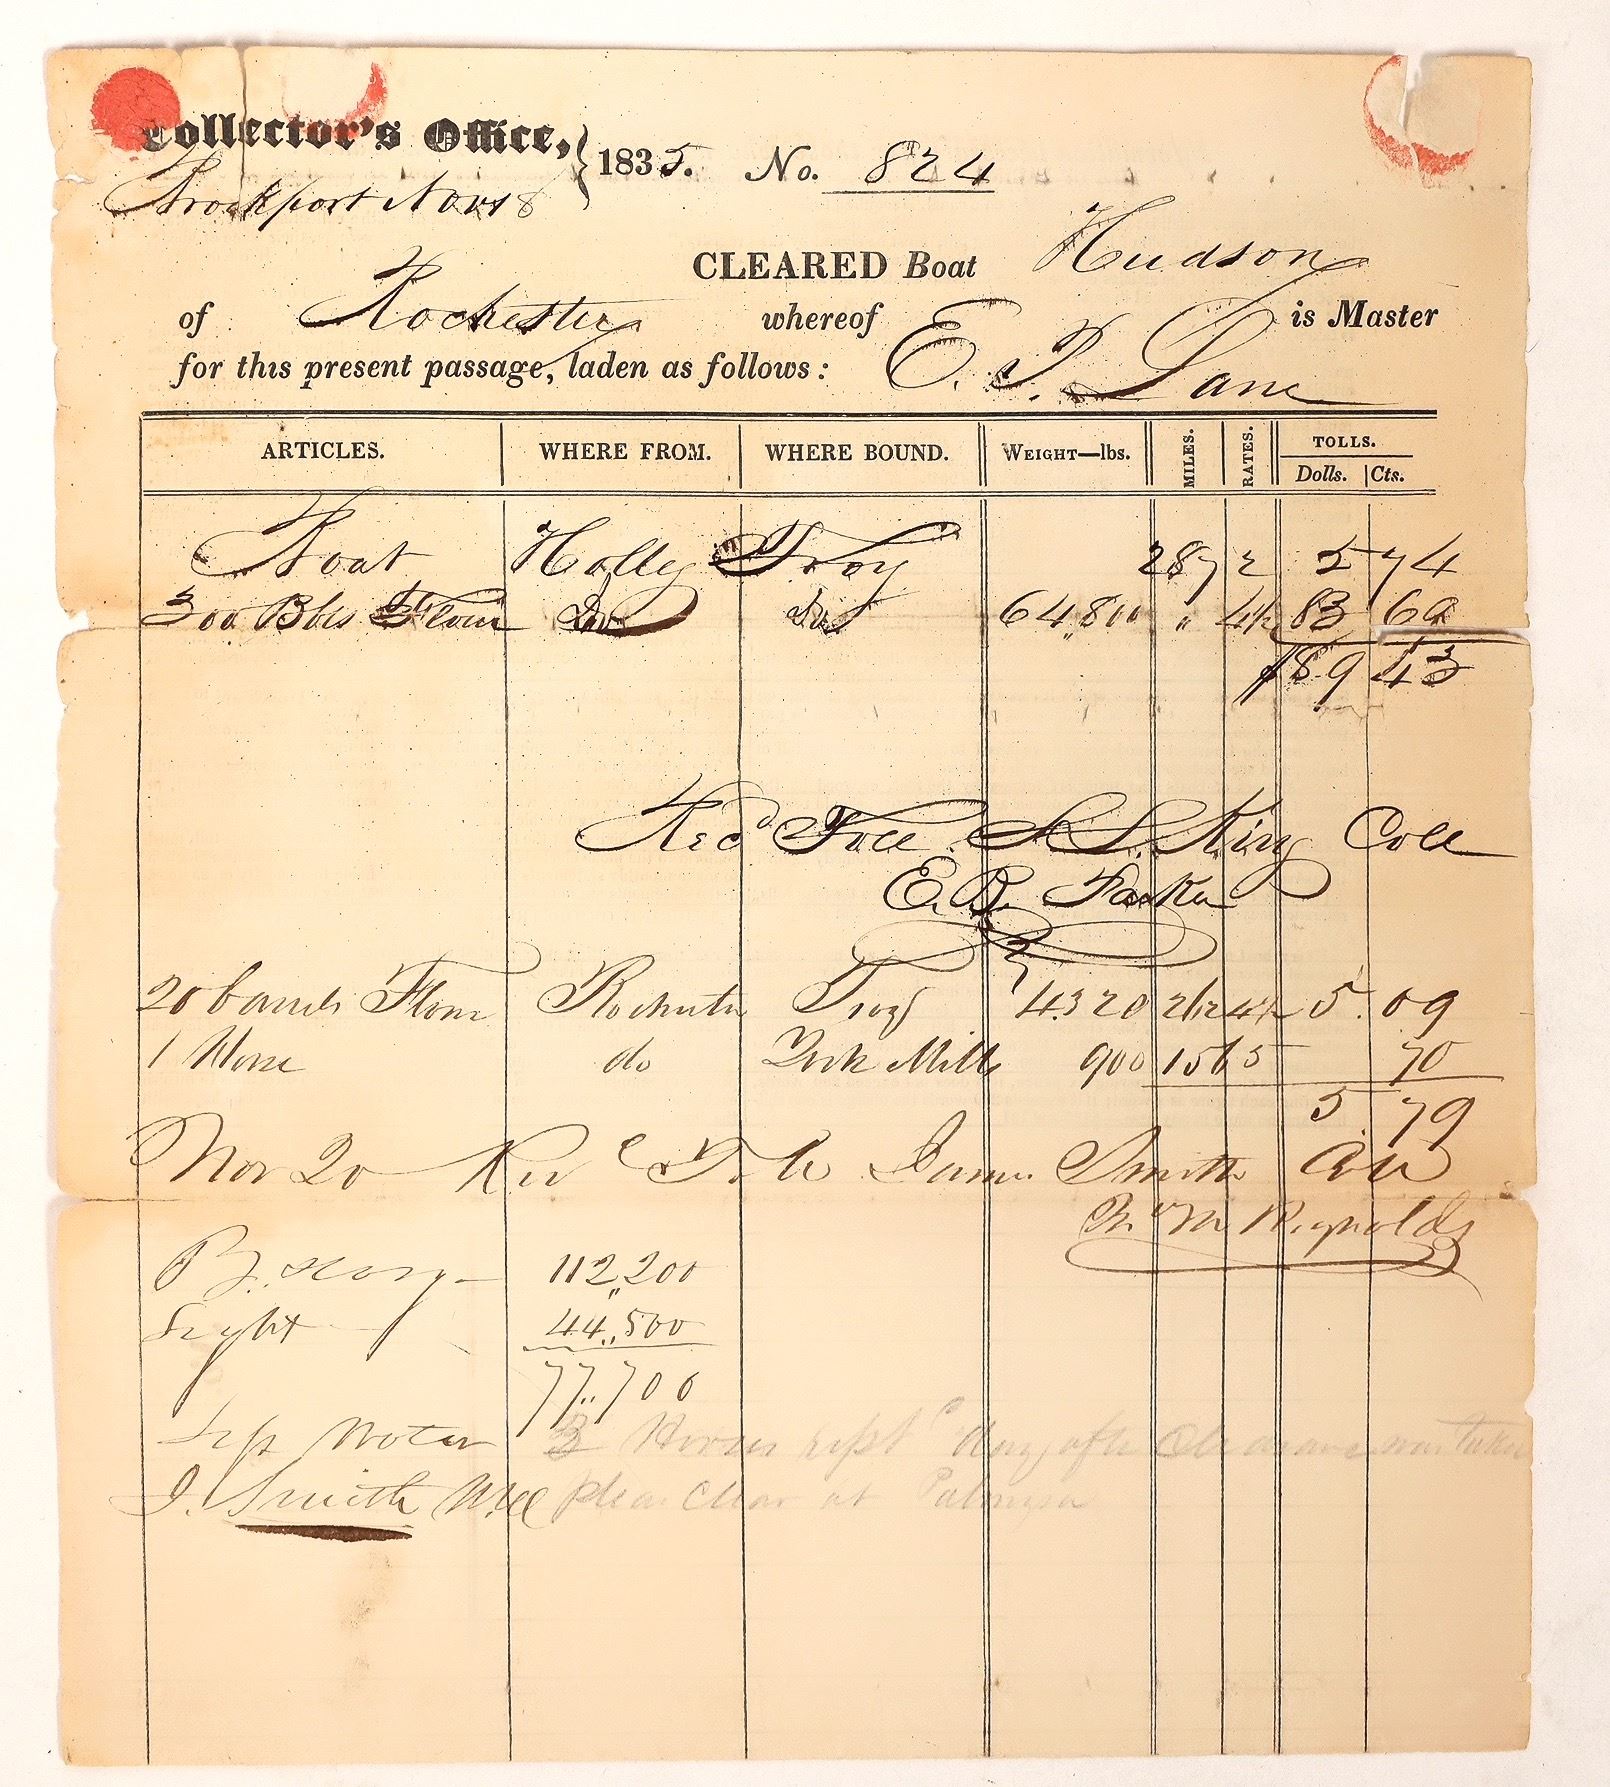 Collector's Office,
Brockport Nov 18
1835. No. 824
CLEARED Boat Hudson
of Rochester whereof E. P. Lane is Master
for this present passage, laden as follows:
ARTICLES. WHERE FROM. WHERE BOUND. WEIGHT—lbs. MILES. RATES. TOLLS.
Dolls. Cts.
Boat Holley Troy 287 2 5 74
300 Bbls Flour Do Do 64,800 " 4½ 83 69
$89 43
Recd Toll S. L. King Coll
E. B.
20 barrels Flour Rochester Troy 4320 262 4½ 5. 09
1 Horse do York Mills 900 156 5 70
5. 79
Nov 20 Rec Toll James Smith Coll
Wm Reynolds
112,200
Light 44,500
77,700
3 Horses kept days after Clearance was taken
J. Smith please Clear at Palmyra